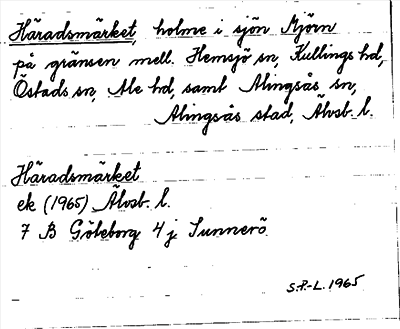 Häradsmärket, holme i sjön Mjörn
på gränsen mell. Hemsjö sn, Kullings hd,
Östads sn, Ale hd, samt Alingsås sn,
Alingsås stad, Älvsb. l.
Häradsmärket
ek (1965) Älvsb. l.
7 B Göteborg 4 j Sunnerö
S.P.-L. 1965